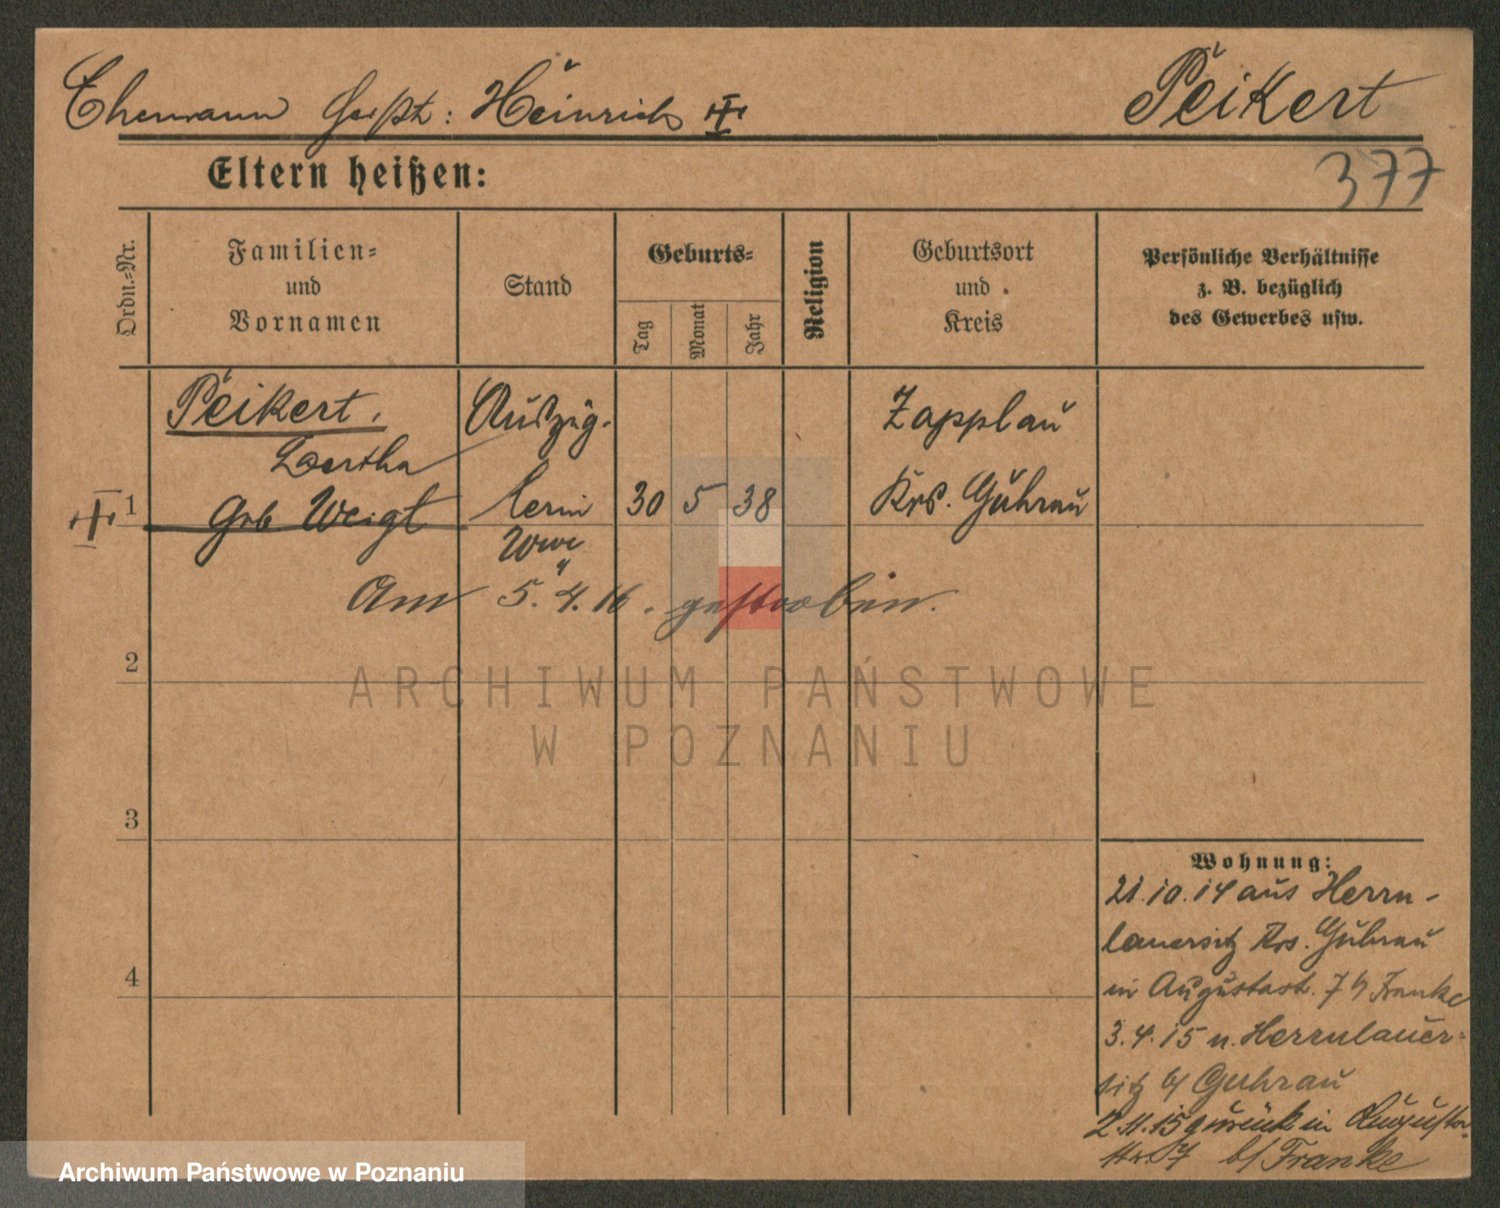 Ehemann heißt: Heinrich
Peikert
377
Eltern heißen:
Ordn.-Nr.
Familien-
und
Vornamen
Stand
Geburts-
Tag
Monat
Jahr
Religion
Geburtsort
und
Kreis
Persönliche Verhältnisse
z. B. bezüglich
des Gewerbes usw.
Peikert, Auszüg- Zapplau
Bertha
1 Geb Weigt lerin 30 5 38 Krs. Guhrau
Wwe
Am 5. 4. 16. gestorben.
2
ARCHIWUM PAŃSTWOWE
W POZNANIU
3
4
Wohnung:
21.10.14 aus Herrn-
lauersitz Krs. Guhrau
in Augustastr. 7 b/ Franke
3.4.15 n. Herrnlauer-
sitz b/ Guhrau
2.11.15 zurück in Augusta-
str. 7 b/ Franke
Archiwum Państwowe w Poznaniu